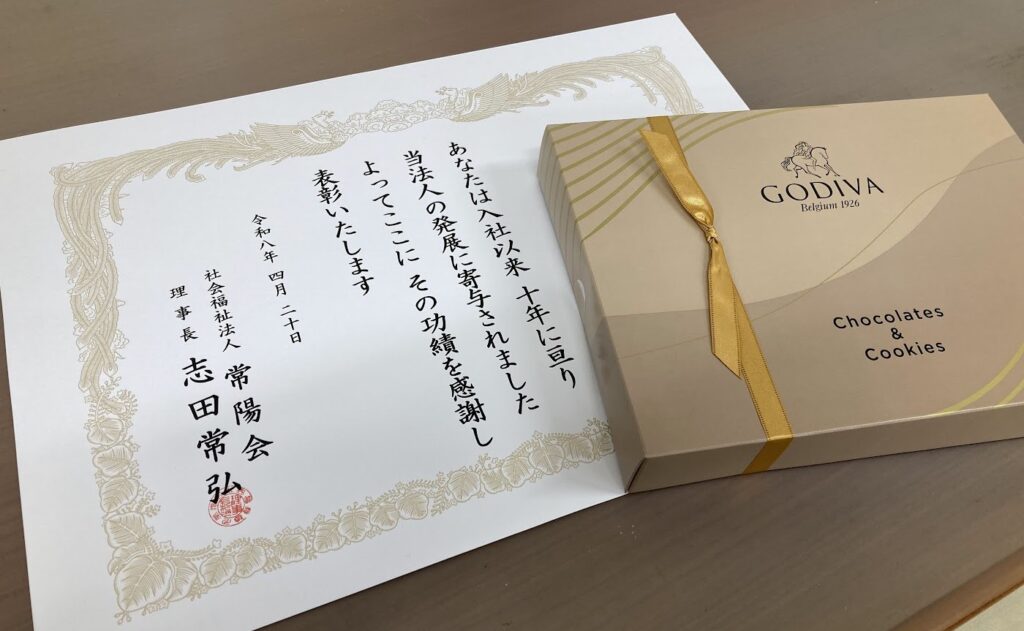 あなたは入社以来 十年に亘り
当法人の発展に寄与されました
よってここに その功績を感謝し
表彰いたします
令和八年 四月 二十日
社会福祉法人 常陽会
理事長 志田常弘
GODIVA
Belgium 1926
Chocolates
&
Cookies